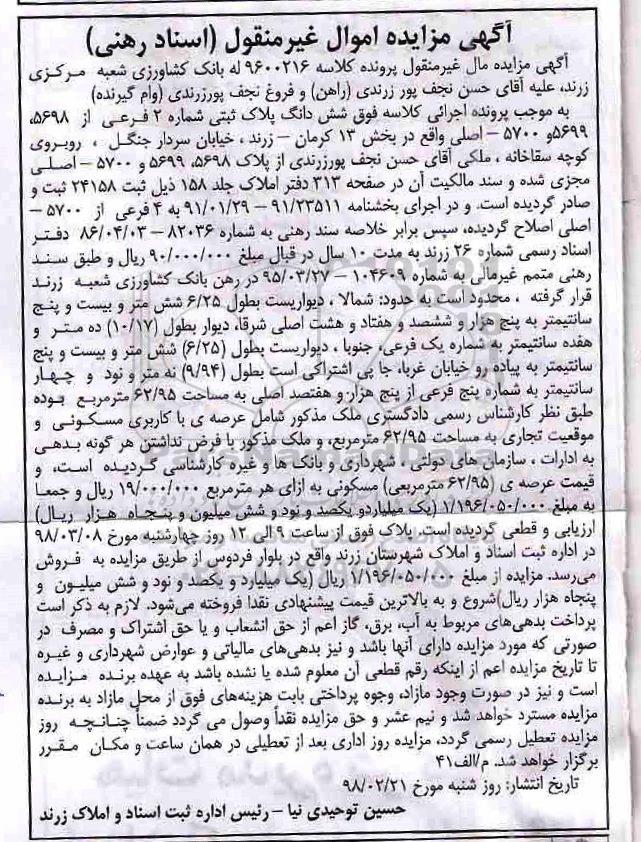 آگهی مزایده اموال غیرمنقول (اسناد رهنی)
آگهی مزایده مال غیرمنقول پرونده کلاسه ۹۶۰۰۲۱۶ له بانک کشاورزی شعبه مرکزی
زرند، علیه آقای حسن نجف پور زرندی (راهن) و فروغ نجف پورزرندی (وام گیرنده)
به موجب پرونده اجرائی کلاسه فوق شش دانگ پلاک ثبتی شماره ۲ فرعی از ۵۶۹۸،
۵۶۹۹و ۵۷۰۰ – اصلی واقع در بخش ۱۳ کرمان – زرند ، خیابان سردار جنگل ، روبروی
کوچه سقاخانه ، ملکی آقای حسن نجف پورزرندی از پلاک ۵۶۹۸، ۵۶۹۹ و ۵۷۰۰ – اصلی
مجزی شده و سند مالکیت آن در صفحه ۳۱۳ دفتر املاک جلد ۱۵۸ ذیل ثبت ۲۴۱۵۸ ثبت و
صادر گردیده است. و در اجرای بخشنامه ۹۱/۲۳۵۱۱ – ۹۱/۰۱/۲۹ به ۴ فرعی از ۵۷۰۰ –
اصلی اصلاح گردیده، سپس برابر خلاصه سند رهنی به شماره ۸۲۰۳۶ – ۸۶/۰۴/۰۳ دفتر
اسناد رسمی شماره ۲۶ زرند به مدت ۱۰ سال در قبال مبلغ ۹۰/۰۰۰/۰۰۰ ریال و طبق سند
رهنی متمم غیرمالی به شماره ۱۰۴۶۰۹ – ۹۵/۰۳/۲۷ در رهن بانک کشاورزی شعبه زرند
قرار گرفته ، محدود است به حدود: شمالا ، دیواریست بطول ۶/۲۵ شش متر و بیست و پنج
سانتیمتر به پنج هزار و ششصد و هفتاد و هشت اصلی شرقا، دیوار بطول (۱۰/۱۷) ده متر و
هفده سانتیمتر به شماره یک فرعی، جنوبا ، دیواریست بطول (۶/۲۵) شش متر و بیست و پنج
سانتیمتر به پیاده رو خیابان غربا، جا پی اشتراکی است بطول (۹/۹۴) نه متر و نود و چهار
سانتیمتر به شماره پنج فرعی از پنج هزار و هفتصد اصلی به مساحت ۶۲/۹۵ مترمربع بوده
طبق نظر کارشناس رسمی دادگستری ملک مذکور شامل عرصه ی با کاربری مسکونی و
موقعیت تجاری به مساحت ۶۲/۹۵ مترمربع، و ملک مذکور با فرض نداشتن هر گونه بدهی
به ادارات ، سازمان های دولتی ، شهرداری و بانک ها و غیره کارشناسی گردیده است، و
قیمت عرصه ی (۶۲/۹۵ مترمربعی) مسکونی به ازای هر مترمربع ۱۹/۰۰۰/۰۰۰ ریال و جمعا
به مبلغ ۱/۱۹۶/۰۵۰/۰۰۰ (یک میلیاردو یکصد و نود و شش میلیون و پنجاه هزار ریال)
ارزیابی و قطعی گردیده است. پلاک فوق از ساعت ۹ الی ۱۲ روز چهارشنبه مورخ ۹۸/۰۳/۰۸
در اداره ثبت اسناد و املاک شهرستان زرند واقع در بلوار فردوس از طریق مزایده به فروش
می‌رسد. مزایده از مبلغ ۱/۱۹۶/۰۵۰/۰۰۰ ریال (یک میلیارد و یکصد و نود و شش میلیون و
پنجاه هزار ریال)شروع و به بالاترین قیمت پیشنهادی نقدا فروخته می‌شود. لازم به ذکر است
پرداخت بدهی‌های مربوط به آب، برق، گاز اعم از حق انشعاب و یا حق اشتراک و مصرف در
صورتی که مورد مزایده دارای آنها باشد و نیز بدهی‌های مالیاتی و عوارض شهرداری و غیره
تا تاریخ مزایده اعم از اینکه رقم قطعی آن معلوم شده یا نشده باشد به عهده برنده مزایده
است و نیز در صورت وجود مازاد، وجوه پرداختی بابت هزینه‌های فوق از محل مازاد به برنده
مزایده مسترد خواهد شد و نیم عشر و حق مزایده نقداً وصول می گردد ضمناً چنانچه روز
مزایده تعطیل رسمی گردد، مزایده روز اداری بعد از تعطیلی در همان ساعت و مکان مقرر
برگزار خواهد شد. م/الف۴۱
تاریخ انتشار: روز شنبه مورخ ۹۸/۰۲/۲۱
حسین توحیدی نیا – رئیس اداره ثبت اسناد و املاک زرند